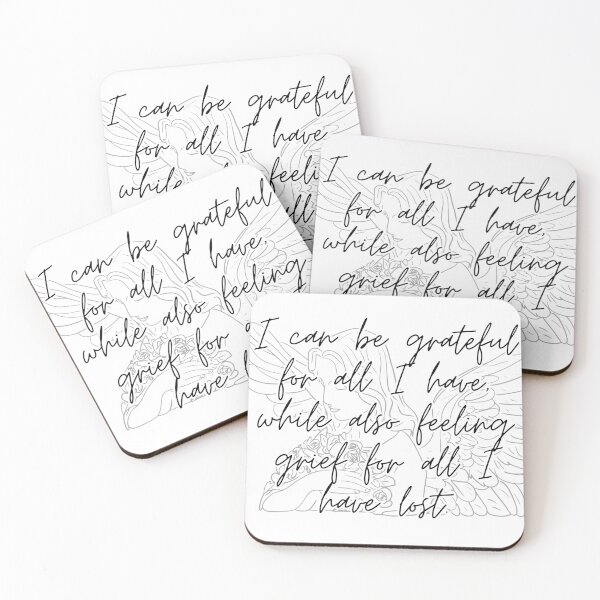 I can be grateful
for all I have
while
I can be grateful
for all I have,
while also feeling
grief for all I
I can be grateful
for all I have,
while also feeling
grief for
have
I can be grateful
for all I have,
while also feeling
grief for all I
have lost.